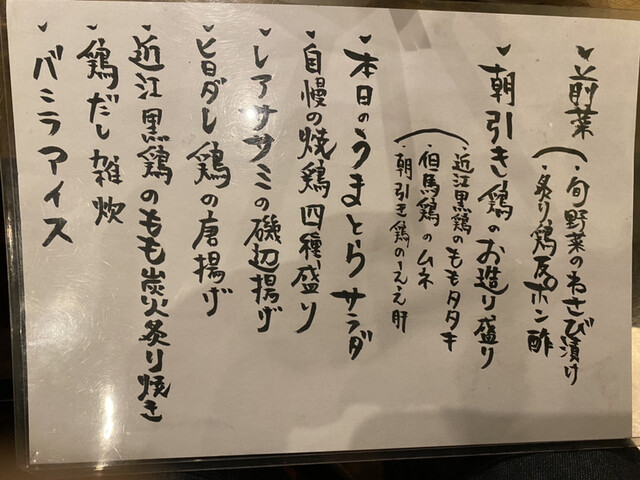 前菜
・旬野菜のわさび漬け
・炙り鶏皮ポン酢
朝引き鶏のお造り盛り
・近江黒鶏のももタタキ
・但馬鶏のムネ
・朝引き鶏のうえ肝
本日のうまとらサラダ
自慢の焼鶏四種盛り
レアササミの磯辺揚げ
旨ダレ鶏の唐揚げ
近江黒鶏のもも炭火炙り焼き
鶏だし雑炊
バニラアイス